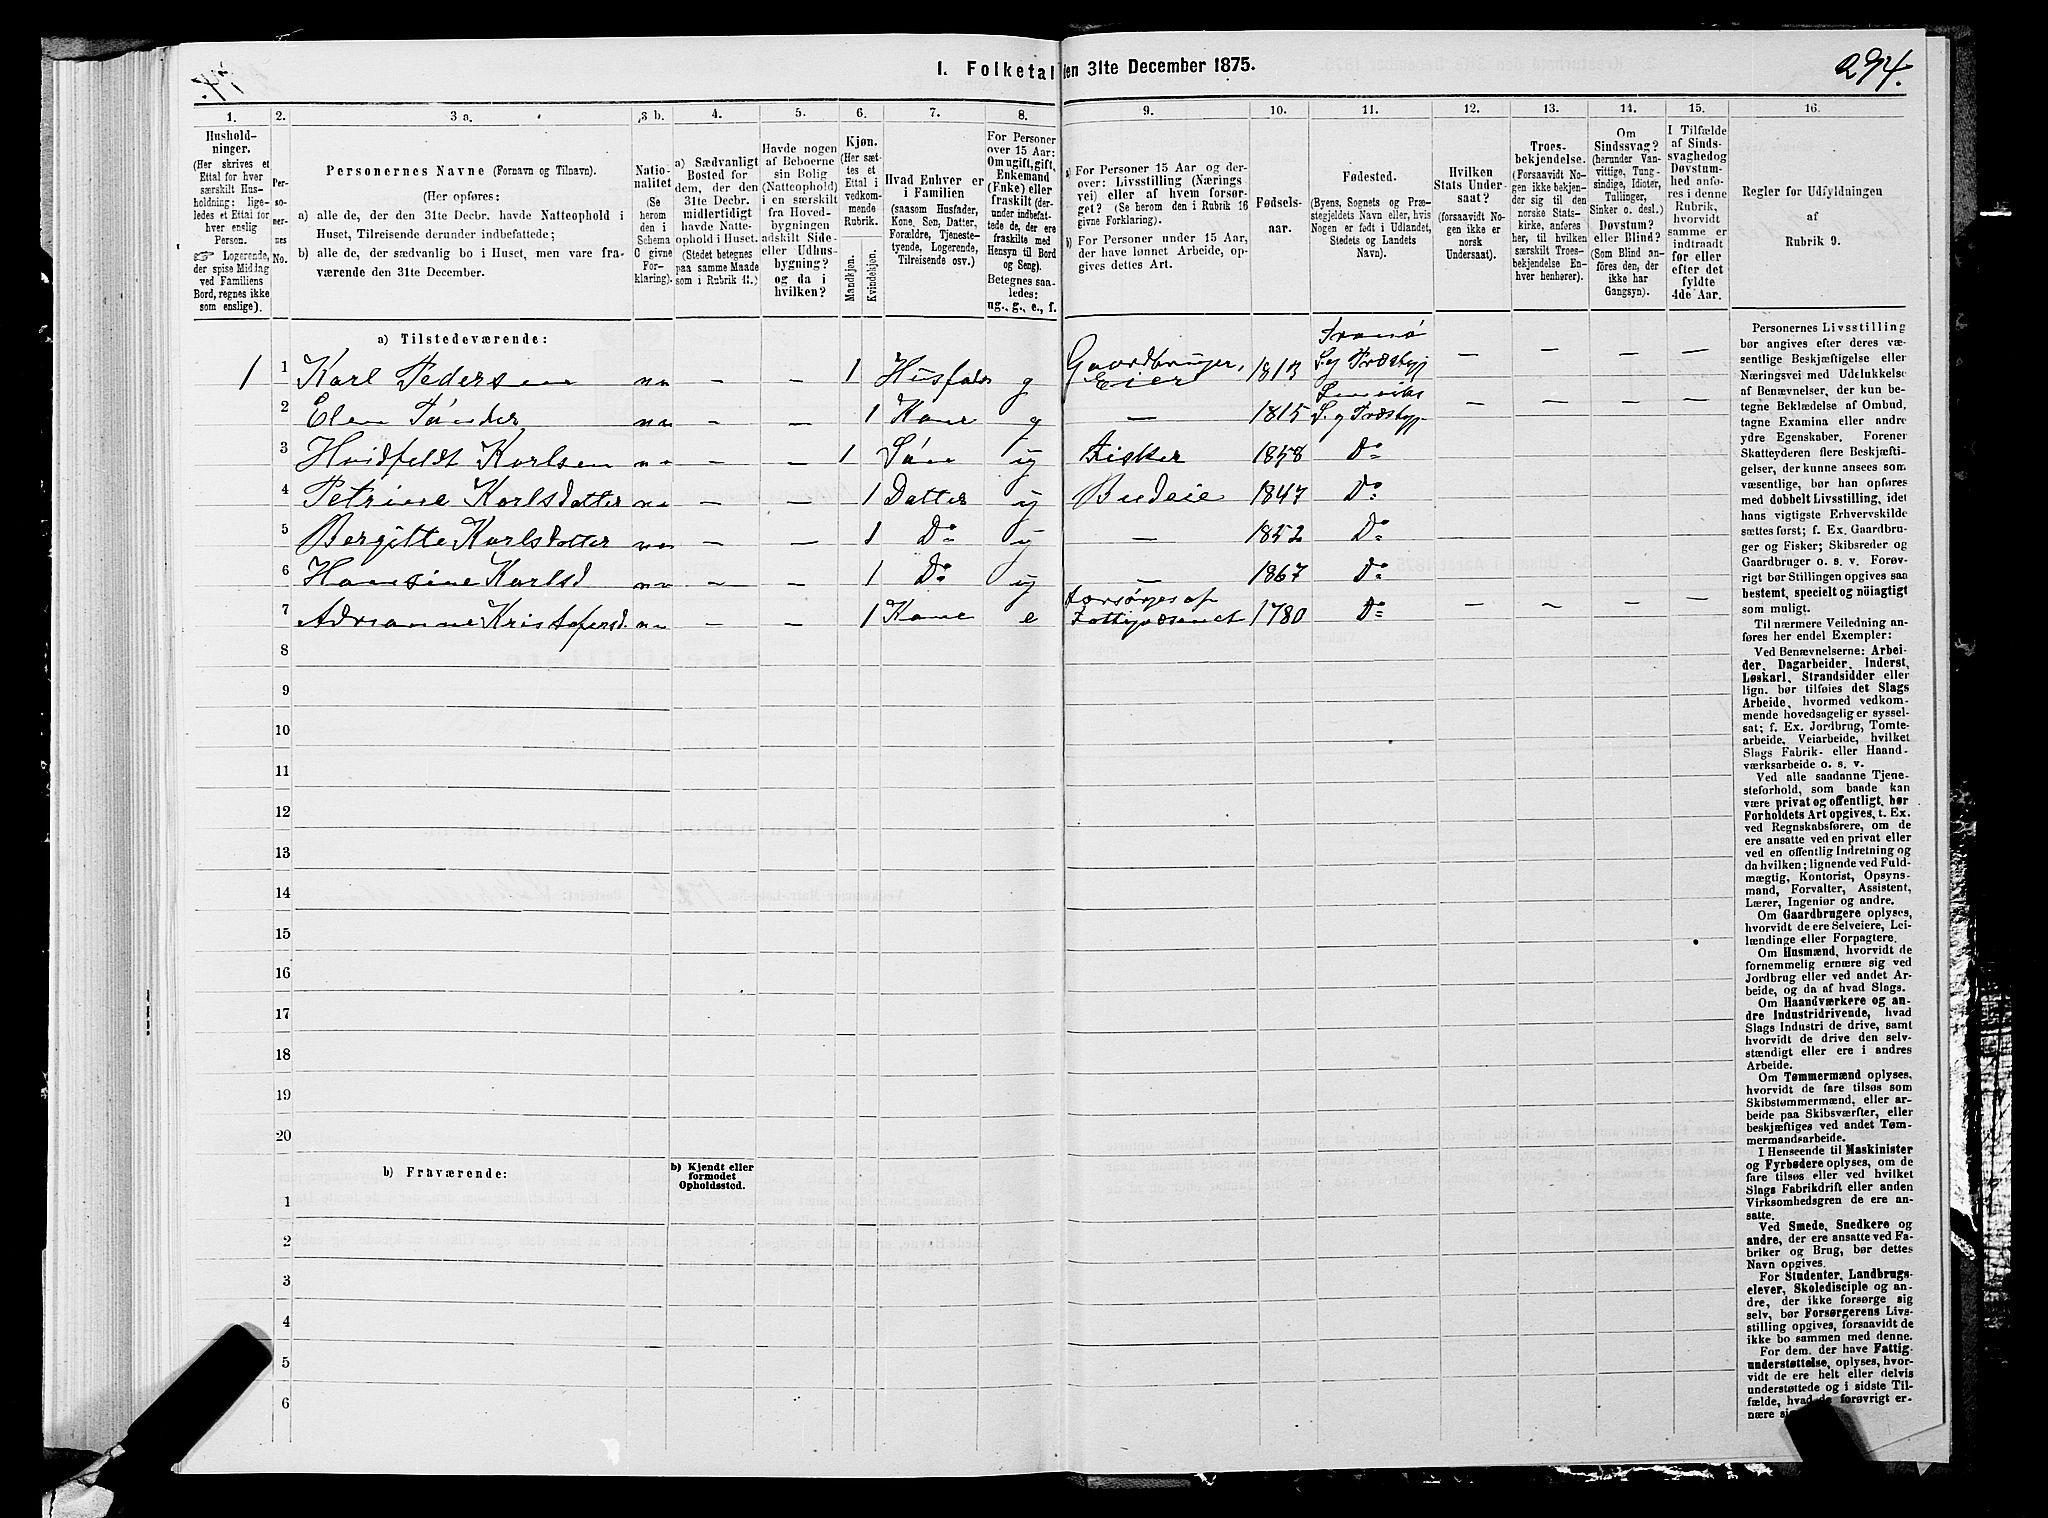 I. Folketal den 31te December 1875.
294.
1.
2.
3 a.
3 b.
4.
5.
6.
7.
8.
9.
10.
11.
12.
13.
14.
15.
16.
Hushold-
ninger.
(Her skrives et
Ettal for hver
særskilt Hus-
holdning: lige-
ledes et Ettal for
hver enslig
Person.
☞ Logerende,
der spise Middag
ved Familiens
Bord, regnes ikke
som enslige).
Per-
so-
ner-
nes
No.
Personernes Navne (Fornavn og Tilnavn).
(Her opføres:
a) alle de, der den 31te Decbr. havde Natteophold i
Huset, Tilreisende derunder indbefattede;
b) alle de, der sædvanlig bo i Huset, men vare fra-
værende den 31te December.
Natio-
nalitet
(Se
herom
den i
Schema
C givne
For-
klaring).
a) Sædvanligt
Bosted for
dem, der den
31te Decbr.
midlertidigt
havde Natte-
ophold i Huset.
(Stedet betegnes
paa samme Maade
som i Rubrik 11.)
Havde nogen
af Beboerne
sin Bolig
(Natteophold)
i en særskilt
fra Hoved-
bygningen
adskilt Side-
eller Udhus-
bygning?
og da i
hvilken?
Kjøn.
(Her sæt-
tes et
Ettal i
vedkom-
mende
Rubrik.
Mandkjøn.
Kvindekjøn.
Hvad Enhver er
i Familien
(saasom Husfader,
Kone, Søn, Datter,
Forældre, Tjeneste-
tyende, Logerende,
Tilreisende osv.)
For Personer
over 15 Aar:
Om ugift, gift,
Enkemand
(Enke) eller
fraskilt (der-
under indbefat-
tede de, der ere
fraskilte med
Hensyn til Bord
og Seng).
Betegnes saa-
ledes:
ug., g., e., f.
a) For Personer 15 Aar og der-
over: Livsstilling (Nærings-
vei) eller af hvem forsør-
get? (Se herom den i Rubrik 16
givne Forklaring).
b) For Personer under 15 Aar,
der have lønnet Arbeide, op-
gives dettes Art.
Fødsels-
aar.
Fødested.
(Byens, Sognets og Præ-
stegjeldets Navn eller, hvis
Nogen er født i Udlandet,
Stedets og Landets
Navn).
Hvilken
Stats Under-
saat?
(forsaavidt No-
gen ikke er
norsk
Undersaat).
Troes-
bekjendelse.
(Forsaavidt No-
gen ikke bekjen-
der sig til den
norske Stats-
kirke, anføres
her, til hvilken
særskilt Troes-
bekjendelse En-
hver henhører).
Om
Sindssvag?
(herunder Van-
vittige, Tung-
sindige, Idioter,
Tullinger,
Sinker o. desl.)
Døvstum?
eller Blind?
(Som Blind an-
føres den, der
ikke har
Gangsyn).
I Tilfælde
af Sinds-
svaghed og
Døvstum-
hed anfø-
res i denne
Rubrik,
hvorvidt
samme er
indtraadt
før eller
efter det
fyldte
4de Aar.
Regler for Udfyldningen
af
Rubrik 9.
a) Tilstedeværende:
1 1 Karl Pedersen nn – – 1 Husfader g Gaardbruger, Eier 1813 Tranø S. og Præstegj – – – –
2 Elen Tønder nn – – 1 Kone g – 1815 Lenviks S. og Præstegj – – – –
3 Hvidfeldt Karlsen nn – – 1 Søn ug Fisker 1858 Do
4 Petrine Karlsdatter nn – – 1 Datter ug Budeie 1847 Do
5 Bergitte Karlsdatter nn – – 1 Do ug – 1852 Do
6 Hansine Karlsd nn – – 1 Do ug – 1867 Do
7 Adrianne Kristofersd. nn – – 1 Kone e Forsørges af Fattigvæsenet 1780 Do – – – –
8
9
10
11
12
13
14
15
16
17
18
19
20
b) Fraværende:
b) Kjendt eller
formodet
Opholdssted.
1
2
3
4
5
6
Personernes Livsstilling
bør angives efter deres væ-
sentlige Beskjæftigelse eller
Næringsvei med Udelukkelse
af Benævnelser, der kun be-
tegne Beklædelse af Ombud,
tagne Examina eller andre
ydre Egenskaber. Forener
Skatteyderen flere Beskjæfti-
gelser, der kunne ansees som
væsentlige, bør han opføres
med dobbelt Livsstilling, idet
hans vigtigste Erhvervskilde
sættes først; f. Ex. Gaardbru-
ger og Fisker; Skibsreder og
Gaardbruger o. s. v. Forøv-
rigt bør Stillingen opgives saa
bestemt, specielt og nöiagtigt
som muligt.
Til nærmere Veiledning an-
føres her endel Exempler:
Ved Benævnelserne: Arbei-
der, Dagarbeider, Inderst,
Løskarl, Strandsidder eller
lign. bør tilføies det Slags
Arbeide, hvormed vedkom-
mende hovedsagelig er syssel-
sat; f. Ex. Jordbrug, Tomte-
arbeide, Veiarbeide, hvilket
Slags Fabrik- eller Haand-
værksarbeide o. s. v.
Ved alle saadanne Tjene-
steforhold, som baade kan
være privat og offentligt, bør
Forholdets Art opgives, t. Ex.
ved Regnskabsførere, om de
ere ansatte ved en privat eller
ved en offentlig Indretning og
da hvilken; lignende ved Fuld-
mægtig, Kontorist, Opsyns-
mand, Forvalter, Assistent,
Lærer, Ingeniør og andre.
Om Gaardbrugere oplyses,
hvorvidt de ere Selveiere, Lei-
lændinge eller Forpagtere.
Om Husmænd, hvorvidt de
fornemmelig ernære sig ved
Jordbrug eller ved andet Ar-
beide, og da af hvad Slags.
Om Haandværkere og an-
dre Industridrivende, hvad
Slags Industri de drive, samt
hvorvidt de drive den selv-
stændigt eller ere i andres
Arbeide.
Om Tømmermænd oplyses,
hvorvidt de fare tilsøs som
Skibstømmermænd, eller ar-
beide paa Skibsværfter, eller
beskjæftiges ved andet Tøm-
mermandsarbeide.
I Henseende til Maskinister
og Fyrbødere oplyses, om de
fare tilsøs eller ved hvilket
Slags Fabrikdrift eller anden
Virksomhedsgren de ere an-
satte.
Ved Smede, Snedkere og
andre, der ere ansatte ved Fa-
briker og Brug, bør dettes
Navn opgives.
For Studenter, Landbrugs-
elever, Skoledisciple og an-
dre, der ikke forsørge sig
selv, bør Forsørgerens Livs-
stilling opgives, forsaavidt de
ikke bo sammen med denne.
For dem, der have Fattig-
understøttelse, oplyses, hvor-
vidt de ere helt eller delvis
understøttede og i sidste Til-
fælde, hvad de forøvrigt er-
nære